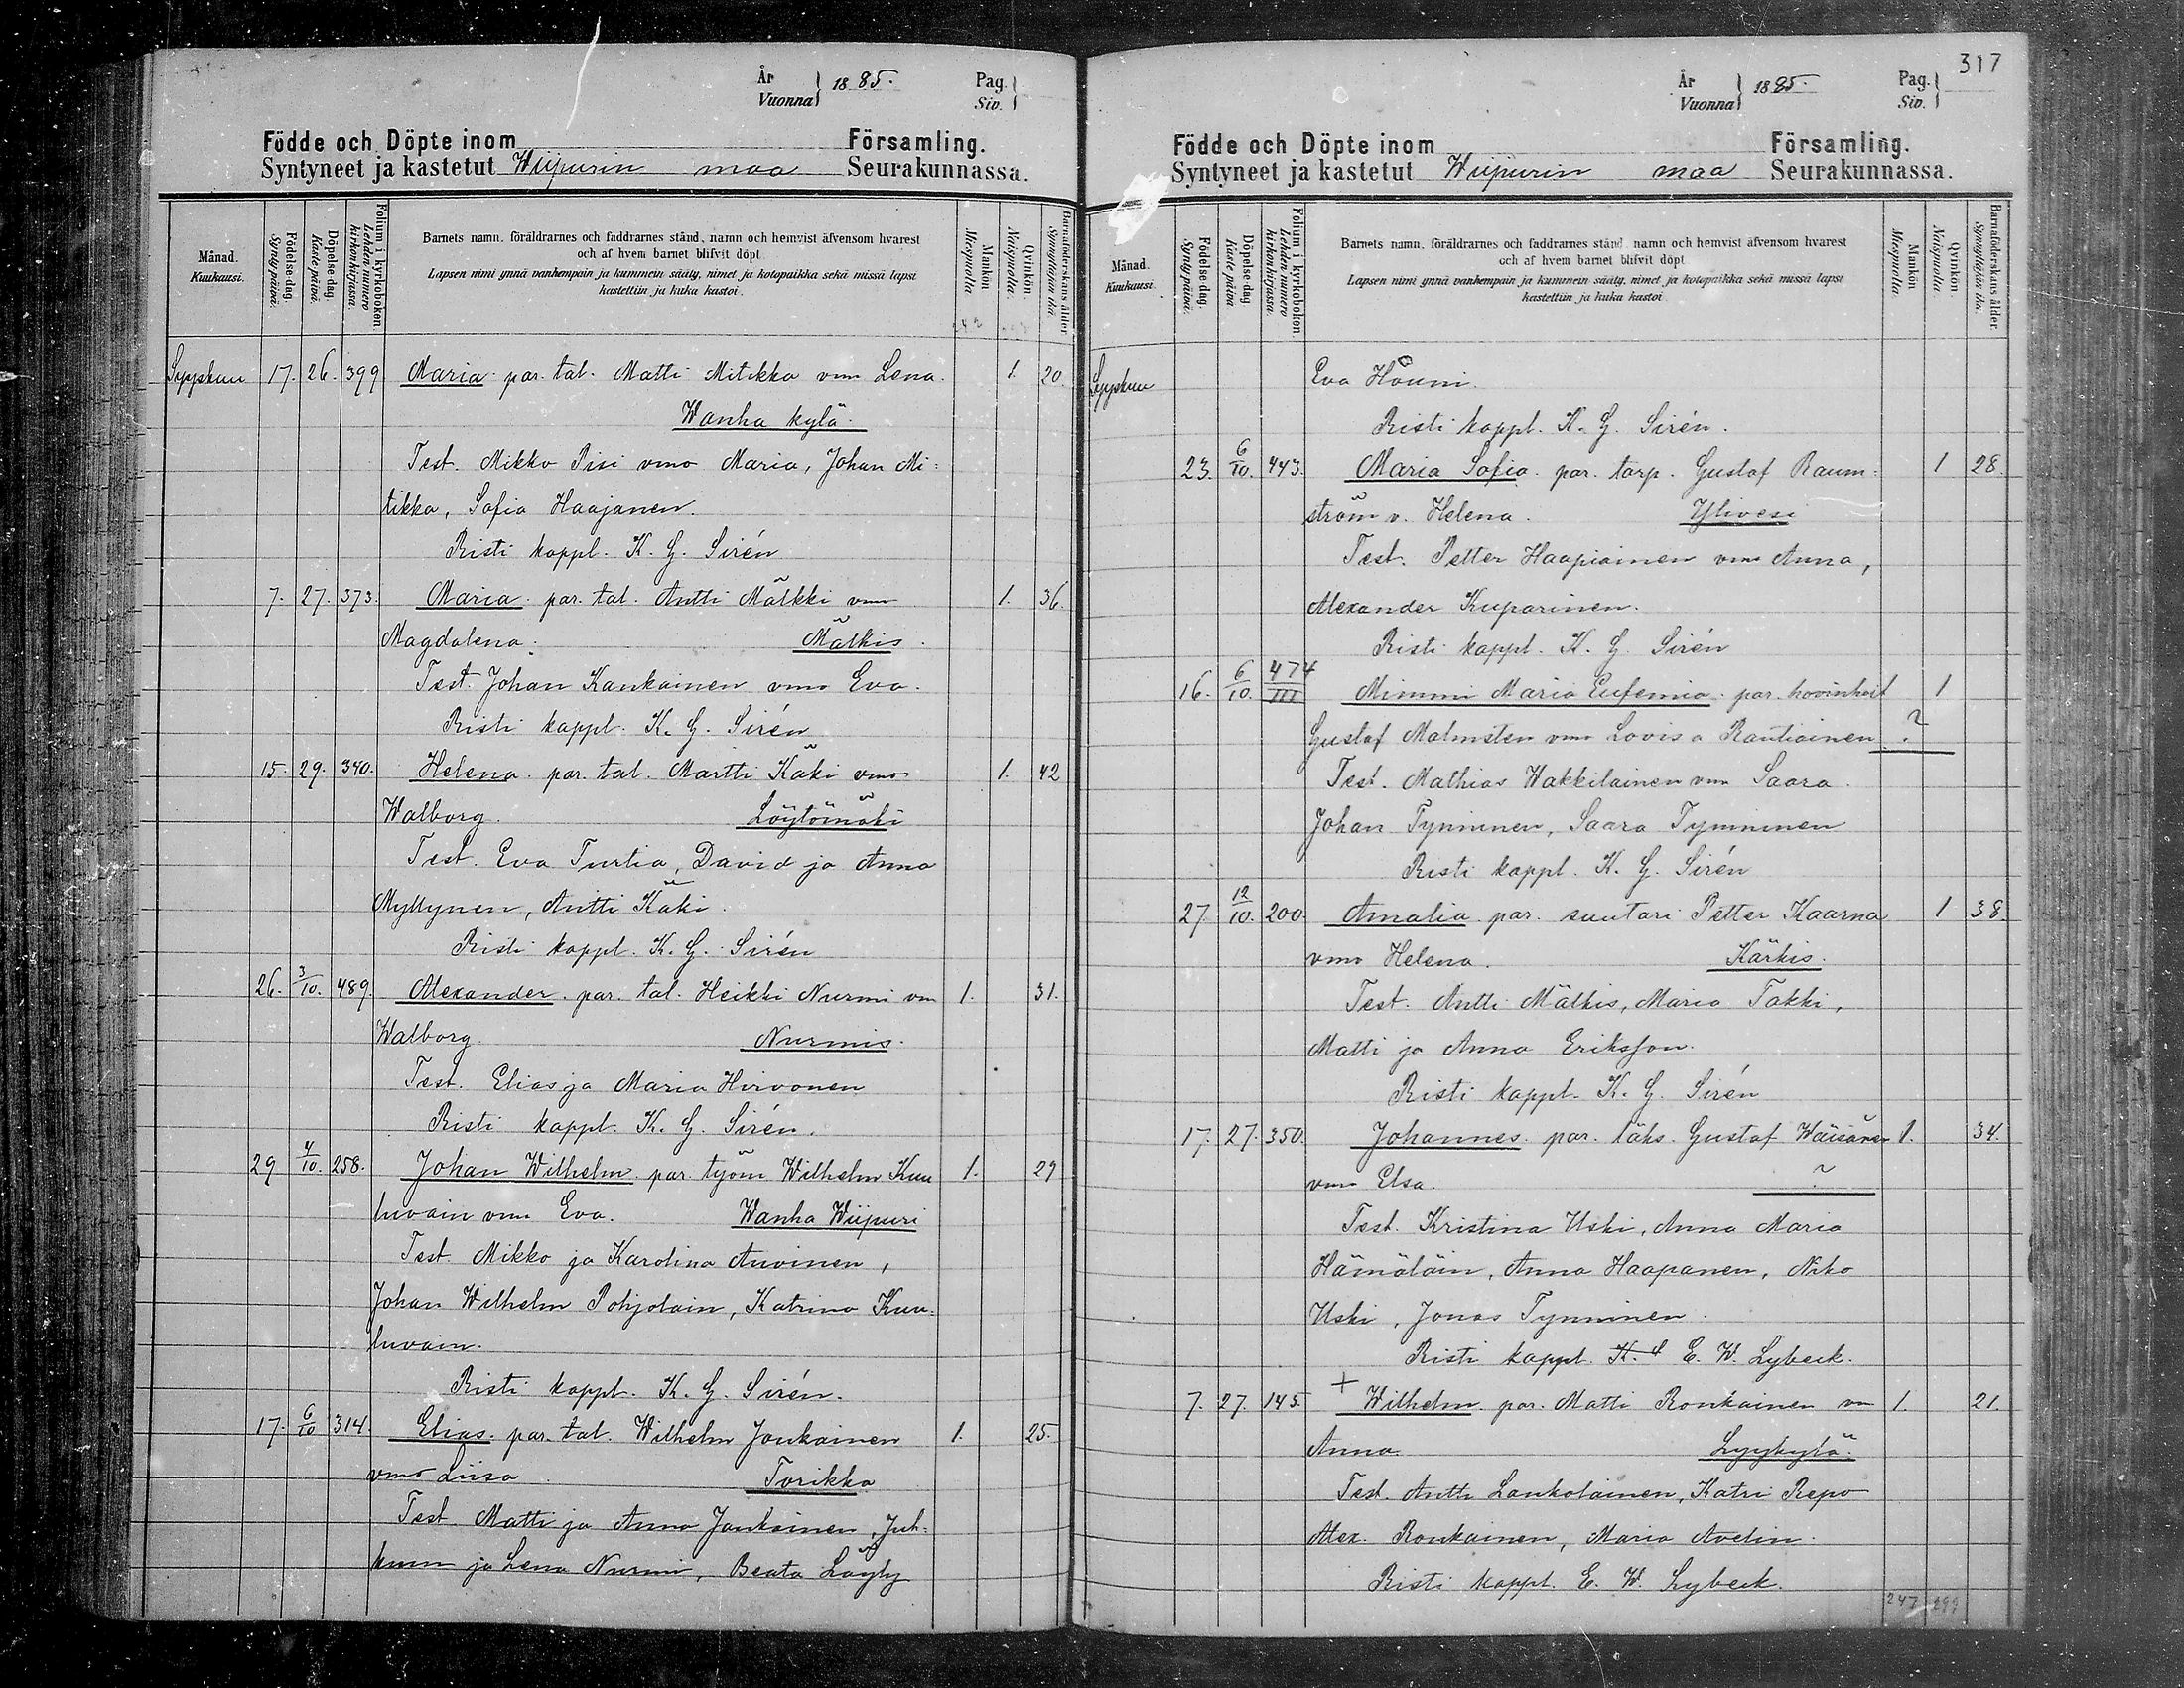 År
Vuonna } 1885. Pag.
Siv. }
Födde och Döpte inom Församling.
Syntyneet ja kastetut Wiipurin maa Seurakunnassa.
Månad. Kuukausi.
Födelse-dag. Synty päivä.
Döpelse-dag. Kaste päivä.
Folium i kyrkoboken Lehden numero kirkonkirjassa.
Barnets namn, föräldrarnes och faddrarnes stånd, namn och hemvist äfvensom hvarest
och af hvem barnet blifvit döpt
Lapsen nimi ynnä vanhempain ja kummein sääty, nimet ja kotopaikka sekä missä lapsi
kastettiin ja kuka kastoi.
Mankön Miespuolia.
Qvinkön. Naispuolia.
Barnaföderskans ålder Synnyttäjän ikä
Syyskuu 17. 26. 399 Maria par. tal. Matti Mitikka vmo Lena. 1. 20.
Wanha kylä.
Test. Mikko Pisi vmo Maria, Johan Mi-
tikka, Sofia Haajanen.
Risti kappl. K. G. Sirén
7. 27. 373. Maria par. tal. Antti Mälkki vmo 1. 36.
Magdalena. Mälkis.
Test. Johan Kankainen vmo Eva.
Risti kappl. K. G. Sirén
15. 29. 340. Helena par. tal. Martti Käki vmo 1. 42
Walborg. Löytömäki
Test. Eva Turtia, David ja Anna
Myllynen, Antti Käki.
Risti kappl. K. G. Sirén
26. 3/10. 489. Alexander par. tal. Heikki Nurmi vm 1. 31.
Walborg. Nurmis.
Test. Elias ja Maria Hirvonen
Risti kappl. K. G. Sirén.
29 4/10. 258. Johan Wilhelm par. työm Wilhelm Kuu 1. 29
luvain vmo Eva. Wanha Wiipuri
Test. Mikko ja Karolina Auvinen,
Johan Wilhelm Pohjolain, Katrina Kuu-
luvain.
Risti kappl. K. G. Sirén.
17. 6/10 314. Elias par. tal. Wilhelm Joukainen 1. 25.
vmo Liisa. Torikka
Test Matti ja Anna Joukainen, Juh-
ja Lena Nurmi, Beata Löyly
317
År
Vuonna } 1885. Pag.
Siv. }
Födde och Döpte inom Församling.
Syntyneet ja kastetut Wiipurin maa Seurakunnassa.
Månad. Kuukausi.
Födelse-dag. Synty päivä.
Döpelse-dag Kaste päivä
Folium i kyrkoboken. Lehden numero kirkonkirjassa.
Barnets namn, föräldrarnes och faddrarnes stånd, namn och hemvist äfvensom hvarest
och af hvem barnet blifvit döpt
Lapsen nimi ynnä vanhempain ja kummein sääty, nimet ja kotopaikka sekä missä lapsi
kastettiin ja kuka kastoi
Mankön Miespuolia.
Qvinkön. Naispuolia.
Barnaföderskans ålder. Synnyttäjän ikä.
Syyskuu Eva Houni.
Risti kappl. K. G. Sirén.
23. 6/10. 443. Maria Sofia par. torp. Gustaf Raum- 1 28.
ström v. Helena. Ylivesi
Test. Petter Haapiainen vmo Anna,
Alexander Kuparinen.
Risti kappl. K. G. Sirén
16. 6/10. 474/III Mimmi Maria Eufemia par. hovinheit 1
Gustaf Malmsten vmo Lovisa Rautiainen ?
Test. Mathias Wakkilainen vmo Saara.
Johan Tynninen, Saara Tynninen
Risti kappl. K. G. Sirén
27 12/10. 200. Amalia par. suutari Petter Kaarna 1 38.
vmo Helena. Kärkis.
Test. Antti Mälkis, Maria Takki,
Matti ja Anna Eriksson.
Risti kappl. K. G. Sirén
17. 27. 350. Johannes par. läks. Gustaf Wäisänen 1. 34.
vmo Elsa. ?
Test. Kristina Uski, Anna Maria
Hämäläin, Anna Haapanen, Niko
Uski, Jonas Tynninen.
Risti kappl. K. G E. W. Lybeck.
7. 27. 145. + Wilhelm par. Matti Ronkainen vm 1. 21.
Anna. Lyykylä.
Test. Antti Lankolainen, Katri Repo
Alex. Ronkainen, Maria Avelin.
Risti kappl. E. W. Lybeck.
247 299